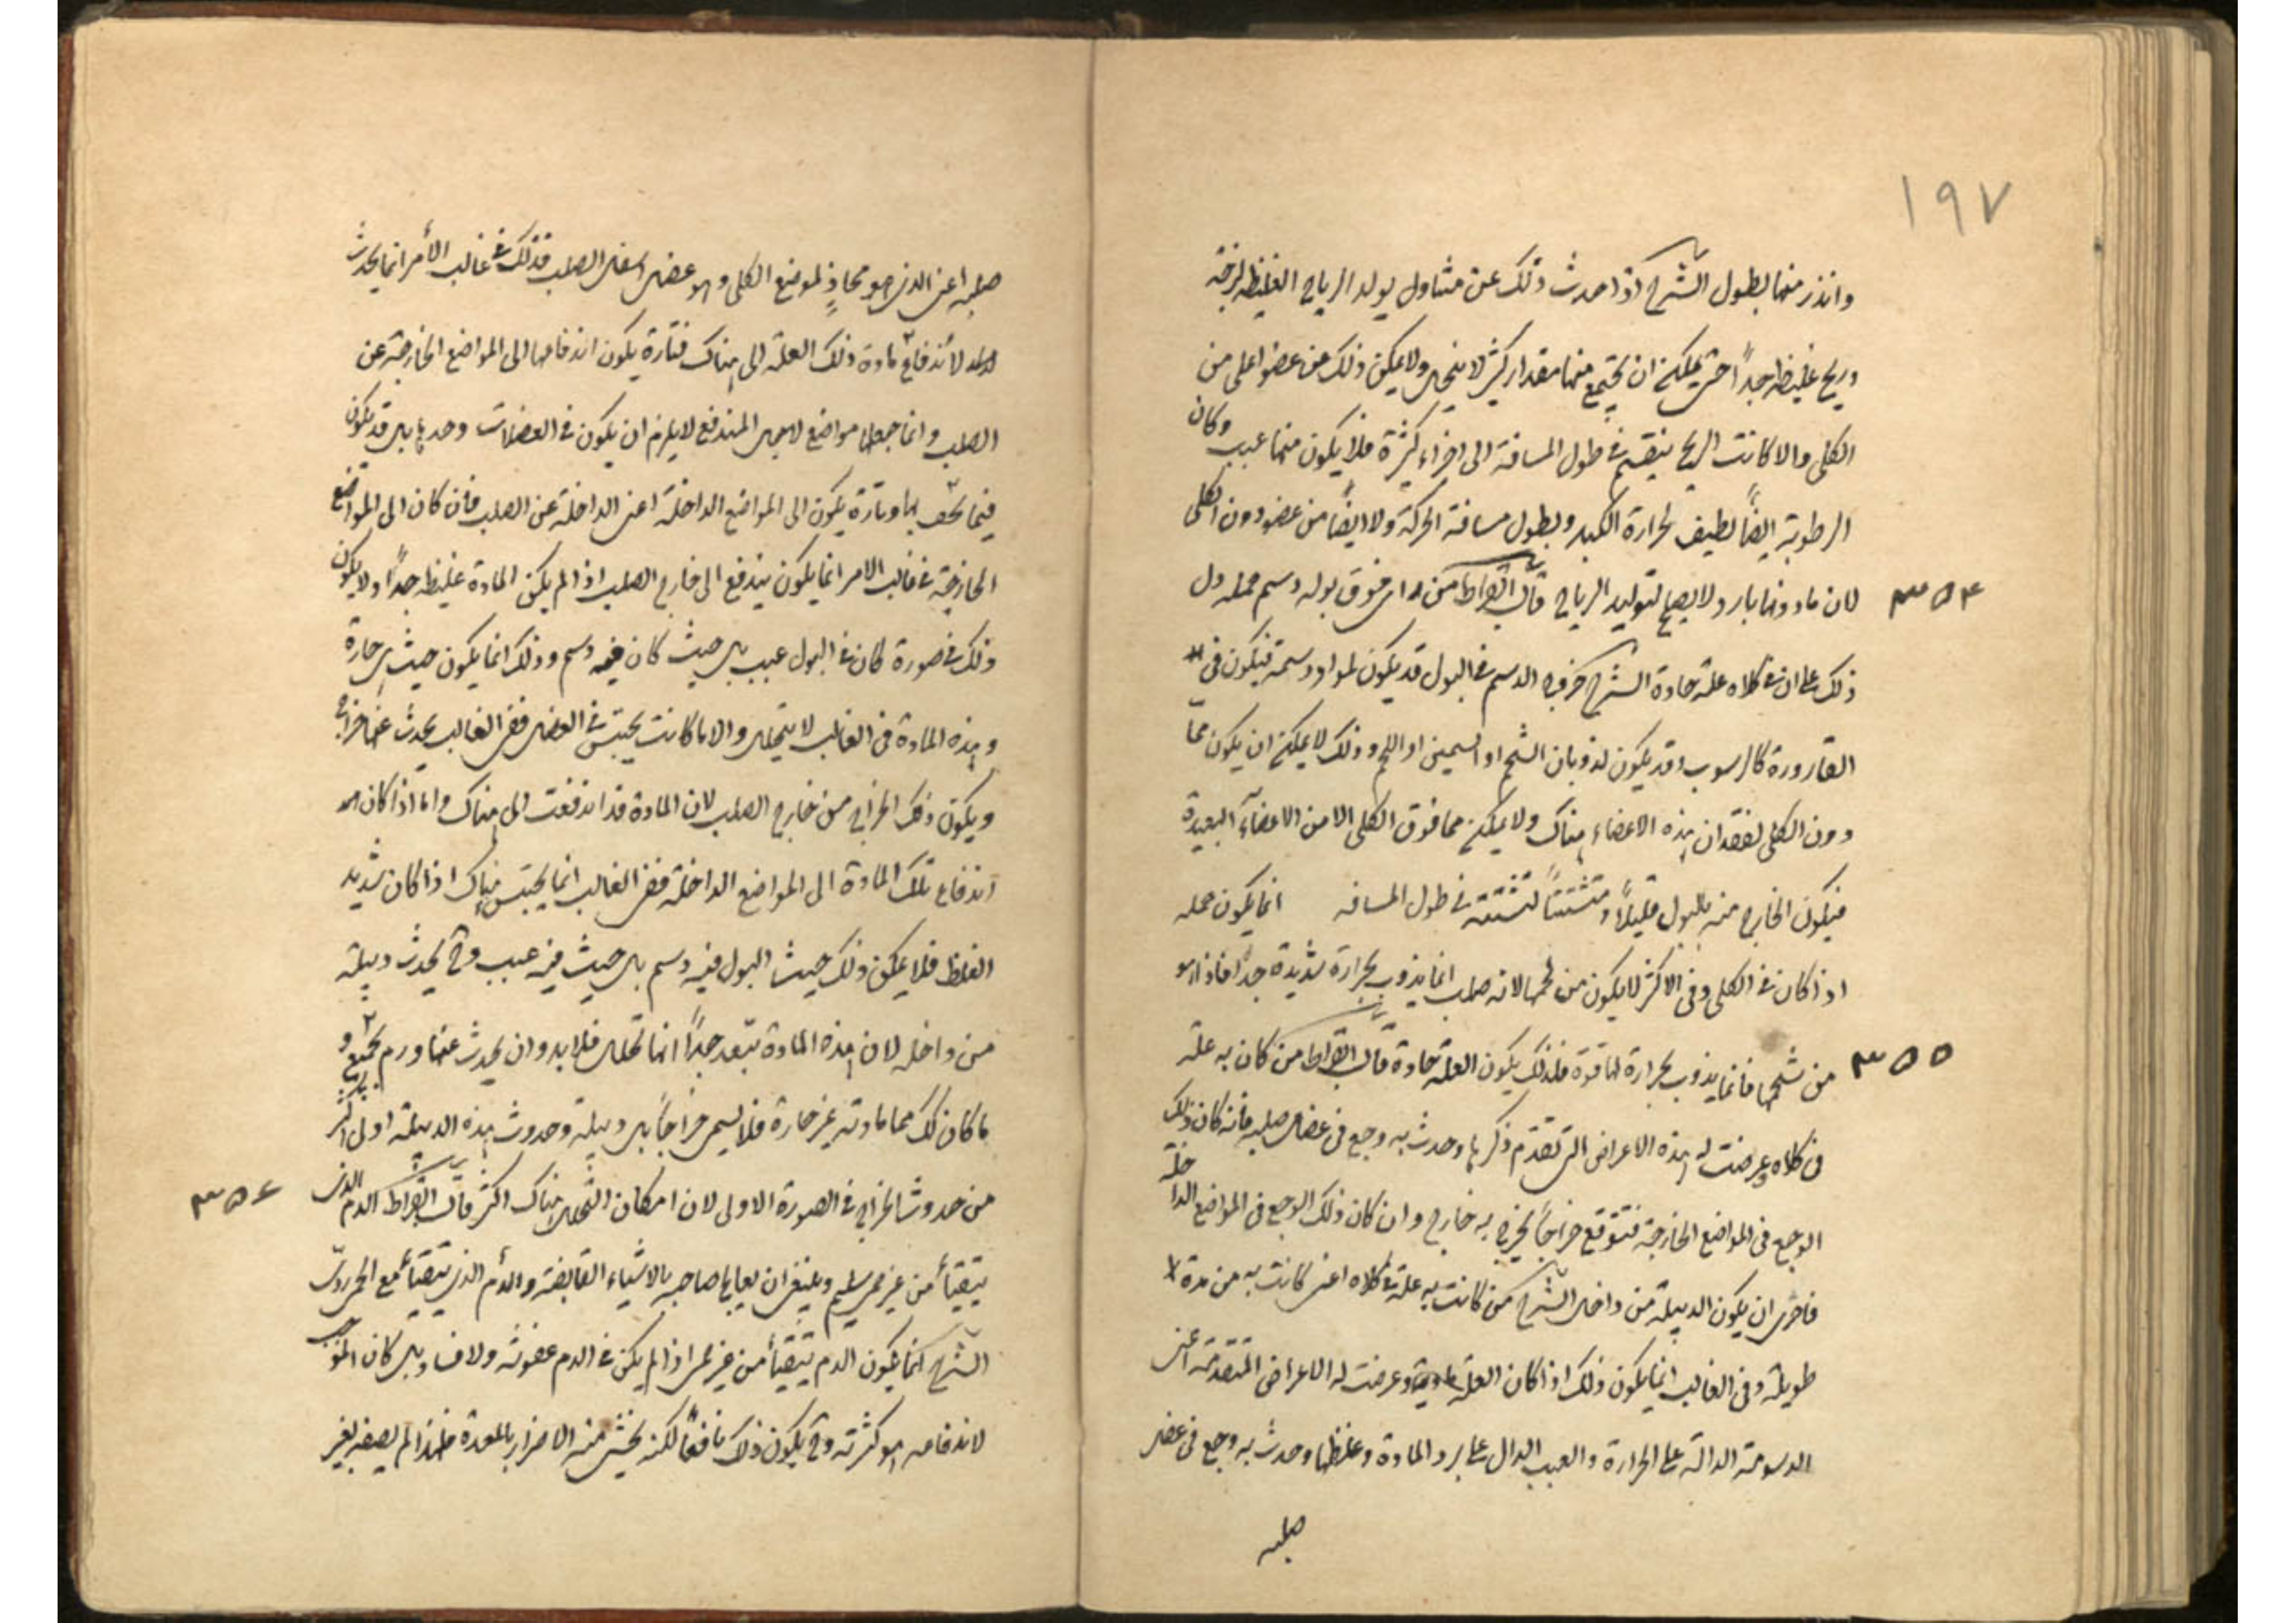 ١٩٧
وانذر منها بطول الشرح اذا حدث ذلك عن متناول يولد الرياح الغليظة لزجة
وريح غليظة جدا حتى يمكن ان يجتمع منها مقدار كثير لا ينحل ولا يمكن ذلك عن عضو اعلى من
الكلى والا كانت الريح ينقسم في طول المسافة الى اجزاء كثيرة فلا يكون منها عبب وكان
الرطوبة ايضًا لطيف لحرارة الكبد وبطول مسافة الحركة ولا ايضًا من عضو دون الكلى
لان ما دونها بارد لا يصلح لتوليد الرياح قال ابقراط من راى فوق بوله دسم جمله دل
٣٥٤
ذلك على ان في كلاه علة حادة الشرح خروج الدسم في البول قد يكون لمواد دسمة فيكون في
القارورة كالرسوب وقد يكون لذوبان الشحم او السمين او اللحم وذلك لا يمكن ان يكون مما
دون الكلى لفقدان هذه الاعضاء هناك ولا يمكن مما فوق الكلى الا من الاعضآء البعيدة
فيكون الخارج منه بالبول قليلًا ومتشتتًا لتشتته في طول المسافه انما يكون جمله
اذا كان في الكلى وفي الاكثر لا يكون من لحمها لانه صلب انما يذوب بحرارة شديدة جدًا فاذا هو
من شحمها فانما يذوب بحرارة لها قوة فلذلك يكون العلة حادة قال ابقراط من كان به علة
٣٥٥
في كلاه وعرضت له هذه الاعراض التي تقدم ذكرها وحدث به وجع في عضل صلبه فانه كان ذلك
الوجع في المواضع الخارجة فتتوقع خراجًا يخرج به خارج وان كان ذلك الوجع في المواضع الداخلة
فاحرى ان يكون الدبيلة من داخل الشرح من كانت به علة في كلاه اعنى كانت به من مدة
طويلة وفي الغالب انما يكون ذلك اذا كان العلة مادية وعرضت له الاعراض المتقدمة اعنى
الدسومة الدالة على الحرارة والعبب الدال على برد المادة وغلظها وحدث به وجع في عضل
صلبه
صلبه اعنى الذى هو محاذٍ لموضع الكلى وهو عضل اسفل الصلب فذلك في غالب الأمر انما يحدث
لاندفاع مادة ذلك العلة الى هناك فتارة يكون اندفاعها الى المواضع الخارجة عن
الصلب وانما جعلها مواضع لا عضل المندفع لا يلزم ان يكون في العضلات وحدها بل قد يكون
فيما يحف بها وتارة يكون الى المواضع الداخلة اعنى الداخلة عن الصلب فان كان الى المواضع
الخارجة في غالب الامر انما يكون يندفع الى خارج الصلب اذا لم يكن المادة غليظة جدًا ولا يكون
ذلك في صورة كان في البول عبب بل حيث كان فيه دسم وذلك انما يكون حيث هى حارة
وهذه المادة في الغالب لا يتحلل والا ما كانت يحتبس في العضل ففى الغالب يحدث عنها خراج
ويكون ذلك الخراج من خارج الصلب لان المادة قد اندفعت الى هناك واما اذا كان
اندفاع تلك المادة الى المواضع الداخلة ففى الغالب انما يحتبس هناك اذا كان شديد
الغلظ فلا يمكن ذلك حيث البول فيه دسم بل حيث فيه عبب وح يحدث دبيلة
من داخله لان هذه المادة يبعد جدًا انها تحلل فلا بد وان يحدث عنها ورم يجمع و
ما كان ذلك مما مادته غير حارة فلا يسمى خراجًا بل دبيلة وحدوث هذه الدبيلة اولى اكثر
من حدوث الخراج في الصورة الاولى لان امكان التحلل هناك اكثر قال ابقراط الدم الذى
٣٥٦
يتقيأ من غير حمى سليم وينبغى ان يعالج صاحبه بالاشياء القابضة والدم الذى يتقيأ مع الحمى ردىّ
الشرح انما يكون الدم يتقيأ من غير حمى اذا لم يكن في الدم عفونة ولا فساد بل كان الموجب
لاندفاعه هو كثرته وح يكون ذلك نافعًا لكنه يخشى منه الاضرار بالمعدة فلهذا لم يصفه بغير